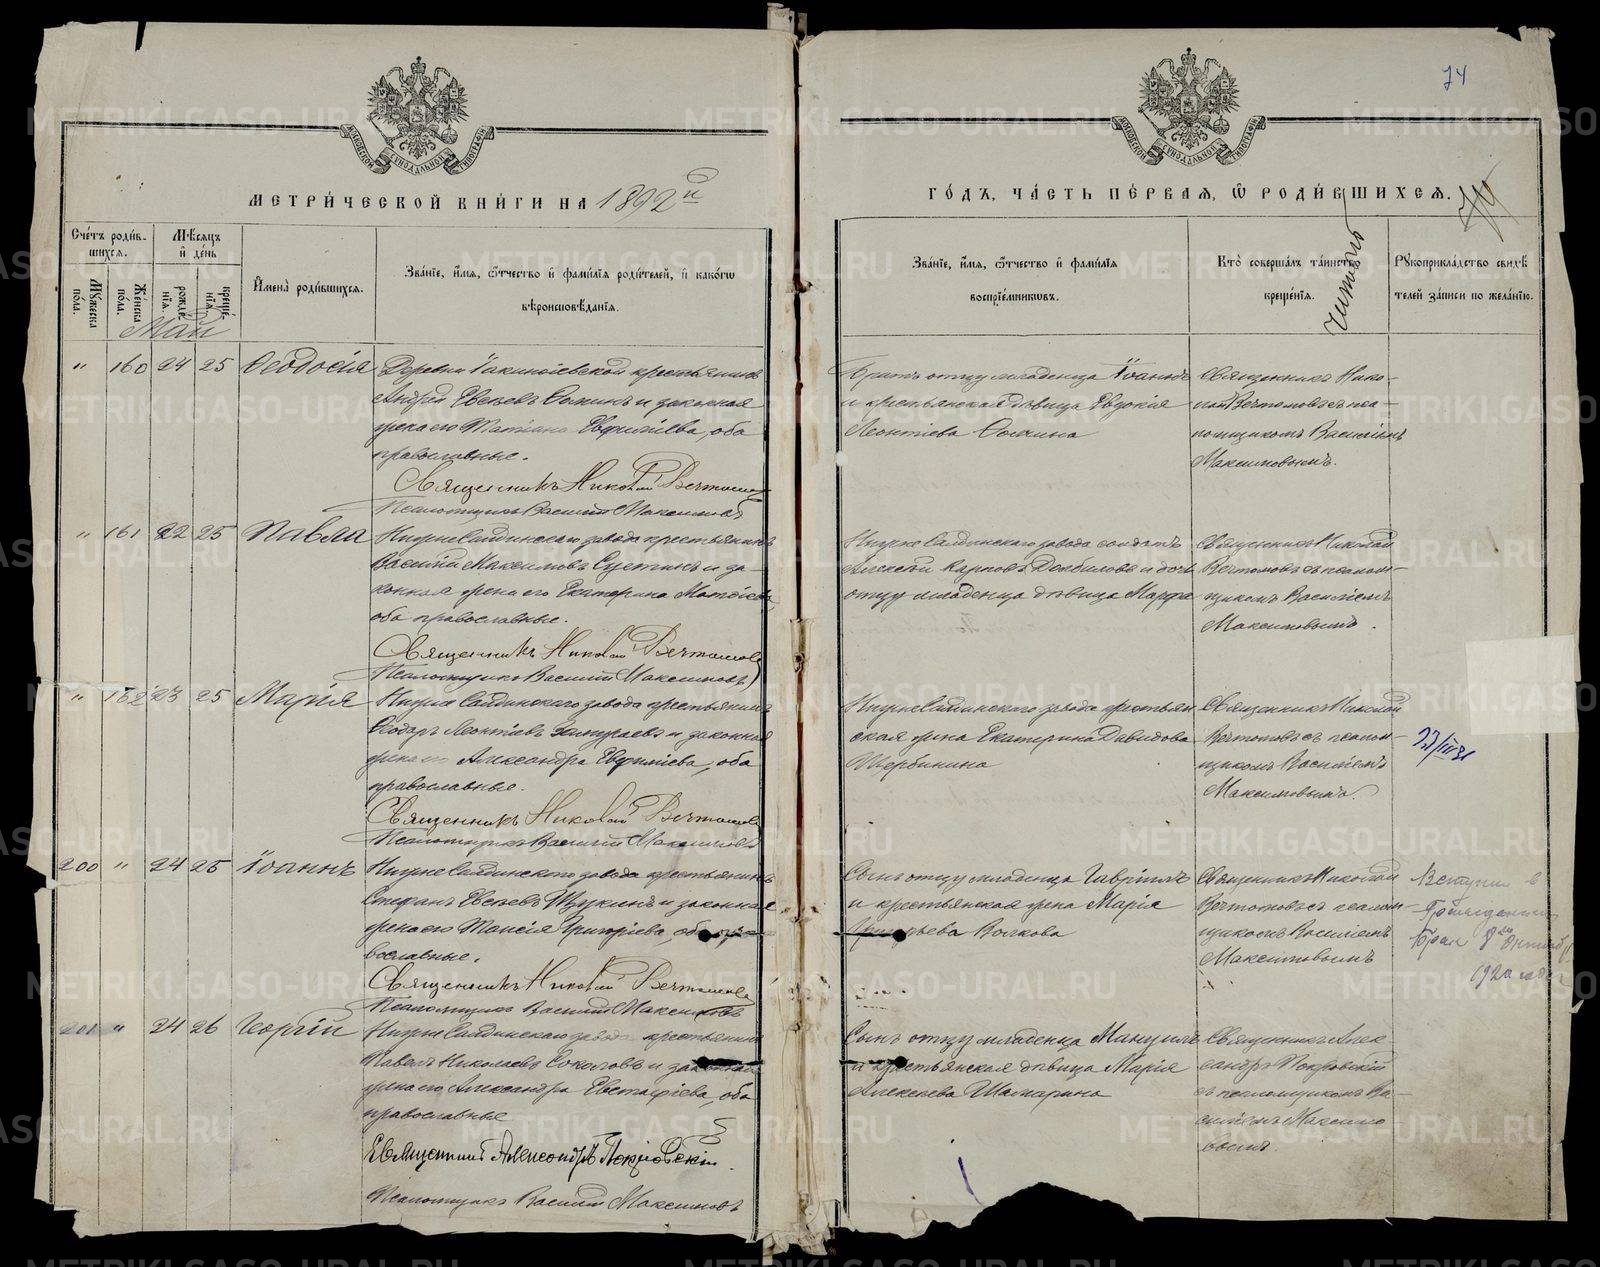 74
МЕТРИ́ЧЕСКОЙ КНИ́ГИ НА 1892 й
ГО́ДЪ, ЧА́СТЬ ПЕ́РВАЯ, Ѡ РОДИ́ВШИХСѦ.
Сче́тъ роди́в-
шихсѧ.
Мꙋ́жеска по́ла.
Же́нска по́ла.
Мѣ́сѧцъ и де́нь
рожде́нїѧ.
креще́нїѧ.
И҆мена̀ роди́вшихсѧ.
Зва́нїе, и҆́мѧ, ѻ҆́тчество и҆ фами́лїѧ роди́телей, и҆ како́гѡ
вѣроисповѣ́данїѧ.
Зва́нїе, и҆́мѧ, ѻ҆́тчество и҆ фами́лїѧ
воспрїе́мниковъ.
Кто̀ соверша́лъ та́инство
креще́нїѧ.
Рꙋкоприкла́дство свидѣ́
телей за́писи по жела́нїю.
Май
" 160 24 25 Ѳеодосія
крестьянинъ
Андрей Евсѣевъ и законная
жена его Татіана Евфиміева, оба
православные.
Священникъ Николай
Псаломщикъ Василій Максимовъ
Братъ отцу младенца Іоаннъ
и крестьянская дѣвица Евдокія
Леонтіева
Священникъ Нико-
лай съ пса-
ломщикомъ Василіемъ
Максимовымъ.
" 161 22 25 Павла
Нижне Салдинскаго завода крестьянинъ
Василій Максимовъ и за-
конная жена его Екатерина
оба православные.
Священникъ Николай
Псаломщикъ Василій Максимовъ
Нижне Салдинскаго завода солдатъ
Алексѣй Карповъ и дочь
отцу младенца дѣвица Марѳа
Священникъ Николай
съ псалом-
щикомъ Василіемъ
Максимовымъ.
" 162 23 25 Марія
Нижне Салдинскаго завода крестьянинъ
Ѳедоръ Леонтіевъ и законная
жена его Александра Евфиміева, оба
православные.
Священникъ Николай
Псаломщикъ Василій Максимовъ
Нижне Салдинскаго завода крестьян
ская жена Екатерина Давидова
Щербинина
Священникъ Николай
съ псалом-
щикомъ Василіемъ
Максимовымъ.
200 " 24 25 Іоаннъ
Нижне Салдинскаго завода крестьянинъ
Стефанъ Евсѣевъ Щукинъ и законная
жена его Таисія Григоріева, оба пра
вославные.
Священникъ Николай
Псаломщикъ Василій Максимовъ
Сынъ отцу младенца Гавріилъ
и крестьянская жена Марія
Волкова
Священникъ Николай
съ псалом-
щикомъ Василіемъ
Максимовымъ
Вступил в
Гражданский
брак 8 Октября
1920 года
201 " 24 26 Георгій
Нижне Салдинскаго завода крестьянинъ
Павелъ Николаевъ Соколовъ и законная
жена его Александра Евстафіева, оба
православные
Священникъ Александръ Покровскій.
Псаломщикъ Василій Максимовъ
Сынъ отцу младенца
и крестьянская дѣвица Марія
Алексѣева Шамарина
Священникъ Алек-
сандръ Покровскій
съ псаломщикомъ Ва-
силіемъ Максимо
вымъ.
METRIKI.GASO-URAL.RU